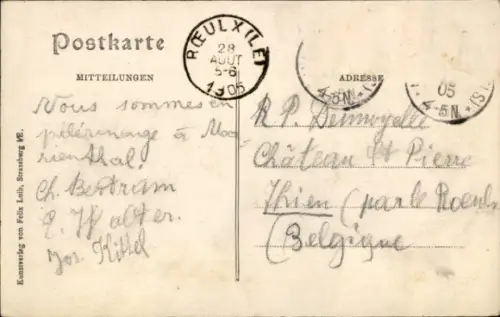 Postkarte
MITTEILUNGEN
ADRESSE
RŒULX (LE)
28
AOUT
5-6
1905
4-5N.
05
4-5N
Vous sommes en
pélérinage à Ma-
rienthal.
Ch. Bertram
E. Walter.
Jos. Kittel
R P.
Château St Pierre
Thieu (par le Roeulx
(Belgique)
Kunstverlag von Felix Luib, Strassburg i/E.